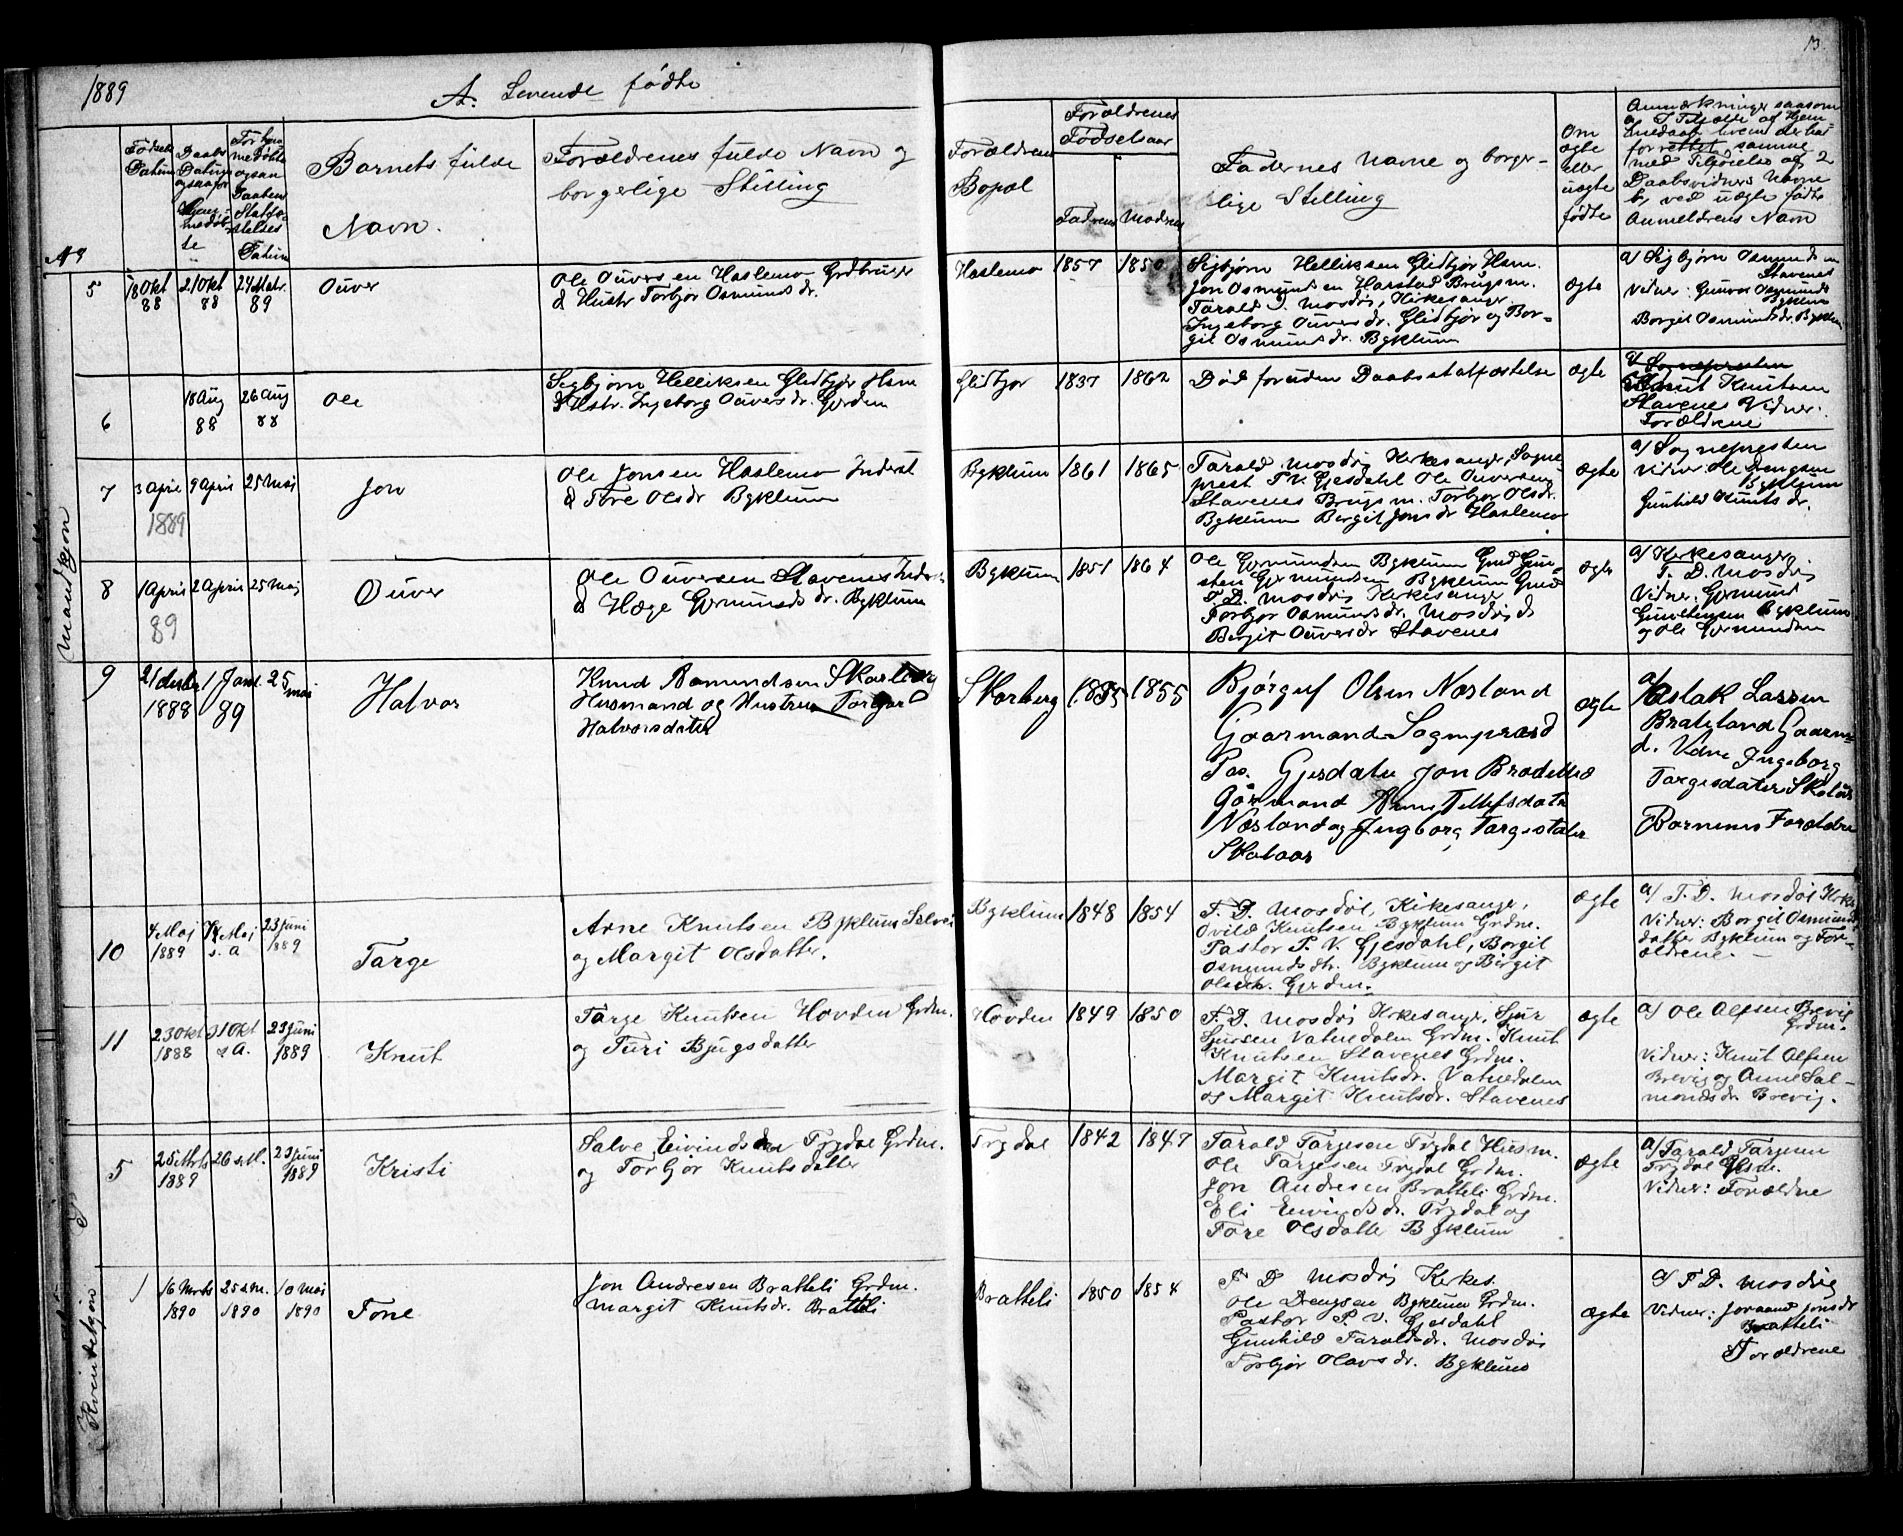 1889
A. Levende fødte
13.
No
Fødsels Datum
Daabs Datum
Barnets fulde
Navn.
Forældrenes fulde Navn og
borgerlige Stilling
Forældrenes
Bopæl
Forældrenes
Fødselsaar
Fadrens Modrens
Fadernes navne og borger-
lige Stilling
Om
ægte
eller
uægte
fødte
Anmærkninger saasom
a, I Tilfælde af Hjem
medaab hvem der har
forrettet samme
med Tilføielse af 2
Daabsvidners Navne
b, ved uægte fødte
Anmeldrens Navn
Mandkjøn
5
18 Okt 88
21 Okt 88
24 Matr. 89
Ouver
Ole Ouversen Haslemo Grdbruger
& Hustr Torbjør Osmundsdr.
Haslemo
1857
1850
Sigbjørn Helliksen Glidbjør Hsm.
Jon Osmundsen Harstad Brugsm.
Tarald D. Mosdøi, Kirkesanger
Ingeborg Ouversdr. Glidbjør og Bor-
git Osmundsdr. Byklum
ægte
a) Sigbjørn Osmundsen
Stavenes
Vidner: Gunvor Osmundsd
Byklum
Borgit Osmundsdr. Byklum
6
18 Aug 88
26 Aug 88
Ole
Sigbjørn Helliksen Glidbjør Hsm
& Hstr. Ingeborg Ouversdr. Gjerden
Glidbjør
1837
1862
Død foruden Daabsstatfæstelse
ægte
a) Sognepresten
Knut Knutsen
Stavenes Vidner:
Forældrene
7
3 April 1889
9 April
25 Mai
Jon
Ole Jonsen Haslemo Inderst
& Tore Olsdr Byklum
Byklum
1861
1865
Tarald Mosdøi Kirkesanger, Sogne-
prest P.V. Gjesdahl Ole Ouversen
Stavenes Brugsm. Torbjør Olsdr.
Byklum Bergit Jonsdr Haslemo
ægte
a) Sognepresten
Vidner: Ole Drengsen
Byklum
Gunhild Knutsdr.
8
1 April 89
2 April
25 Mai
Ouver
Ole Ouversen Stavenes Inderst
& Hæge Gjermundsdr. Byklum
Byklum
1851
1864
Ole Gjermundsen Byklum Grud Gun-
sten Gjermundsen Byklum Grud
T.D. Mosdøi Kirkesanger
Torbjør Osmundsdr. Mosdøi &
Bergit Ouversdr Stavenes
ægte
a) Kirkesanger
T. D. Mosdøi
Vidner: Gjermund
Gunstensen Byklum
og Ole Gjermundsen
9
21 desbr 1888
1 Jant. 89
25 mai
Halvor
Knud Aamundsen Skarberg
Husmand og Hustru Torgar
Halvorsdater
Skarberg
1855
1855
Bjørguf Olsen Næsland
Gaarmand Sognepræsd
Pas. Gjesdale Jon Bradeliid
Gårmand Anne Tellefsdater
Næsland og Ingborg Targesdater
Skolaas
ægte
a) Aslak Lassen
Bratland Gaarm-
d. Vidne Ingeborg
Targesdater Skolås
Barnenes Foraldre
10
4 Maj 1889
14 Maj s. A
23 Juni 1889
Targe
Arne Knutsen Byklum Selvei
og Margit Olsdatter.
Byklum
1848
1854
T. D. Mosdøl, Kirkesanger,
Ovild Knutsen Byklum Grdm.
Pastor P. V. Gjesdahl, Borgit
Osmundsdtr. Byklum og Birgit
Olsdtr. Gjerden.
ægte
a) T. D. Mosdøl Kirke
Vidner: Borgit Osmunds-
datter Byklum og For-
ældrene. —
11
23 Okt 1888
31 Okt s A.
23 Juni 1889
Knut
Targe Knutsen Hovden Grdm.
og Turi Bjugsdatter
Hovden
1849
1850
T. D. Mosdøi Kirkesanger, Sjur
Sjursen Vatnedalen Grdm. Knut
Knutsen Stavenes Grdm.
Margit Knutsdr. Vatnedalen
og Margit Knutsdr. Stavenes
ægte
a) Ole Alfsen Breivig
Grdm.
Vidner: Knut Alfsen
Breivig og Anne Sal-
mondsdr Breivig.
Kvindekjøn
5
25 Mrts 1889
26 s.M.
23 Juni 1889
Kristi
Salve Eivindsen Trydal Grdm.
og Torbjør Knutsdatter
Trydal
1842
1847
Tarald Targesen Trydal Husm.
Ole Targesen Trydal Grdm.
Jon Andresen Bratteli Grdm.
Eli Eivindsdr. Trydal og
Tore Olsdatter Byklum
ægte
a) Tarald Targesen
Trydal Hsm.
Vidner: Forældrne
1
16 Marts 1890
25 s.M. 1890
10 Mai 1890
Tone
Jon Andresen Bratteli Grdm.
Margit Knutsdr. Bratteli
Bratteli
1850
1854
T. D. Mosdøi Kirkes.
Ole Drengsen Byklum Grdm.
Pastor P. V. Gjesdahl
Gunhild Taraldsdr. Mosdøi
Torbjør Olavsdr. Byklum
ægte
a) T D. Mosdøig
Vidner: Joraand Jonsdr
Bratteli
Forældrene